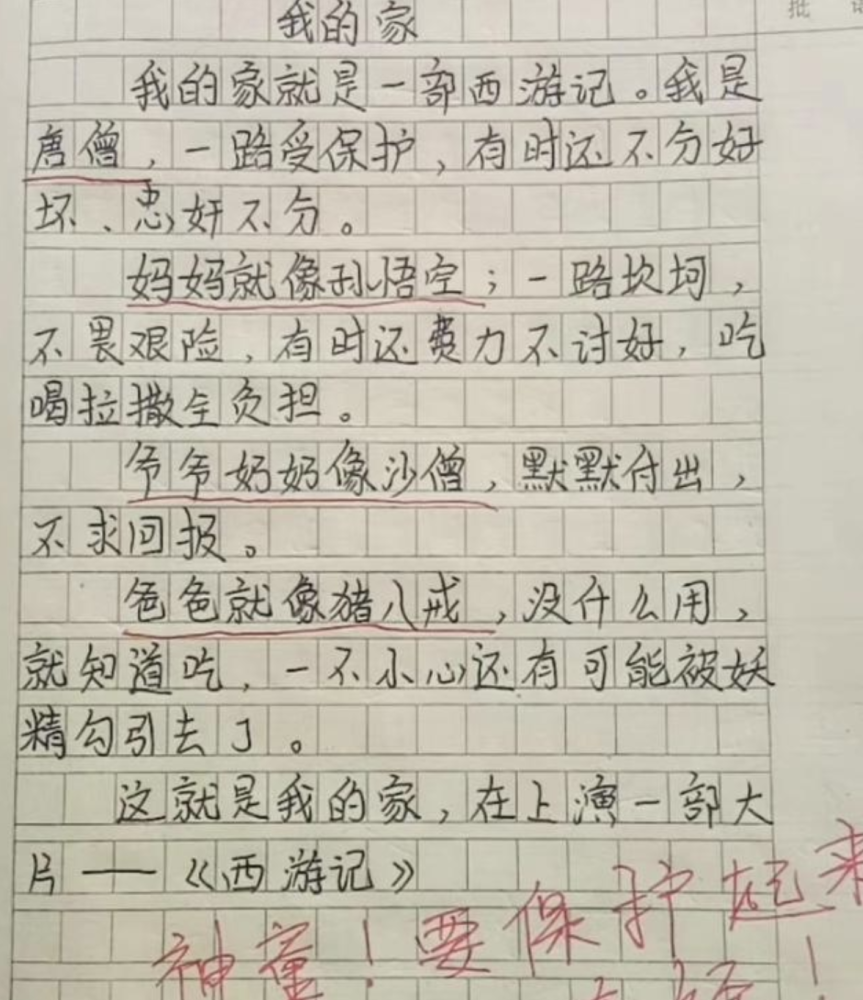 我的家
我的家就是一部西游记。我是
唐僧，一路受保护，有时还不分好
坏、忠奸不分。
妈妈就像孙悟空；一路坎坷，
不畏艰险，有时还费力不讨好，吃
喝拉撒全负担。
爷爷奶奶像沙僧，默默付出，
不求回报。
爸爸就像猪八戒，没什么用，
就知道吃，一不小心还有可能被妖
精勾引去了。
这就是我的家，在上演一部大
片——《西游记》
神童！要保护起来
！